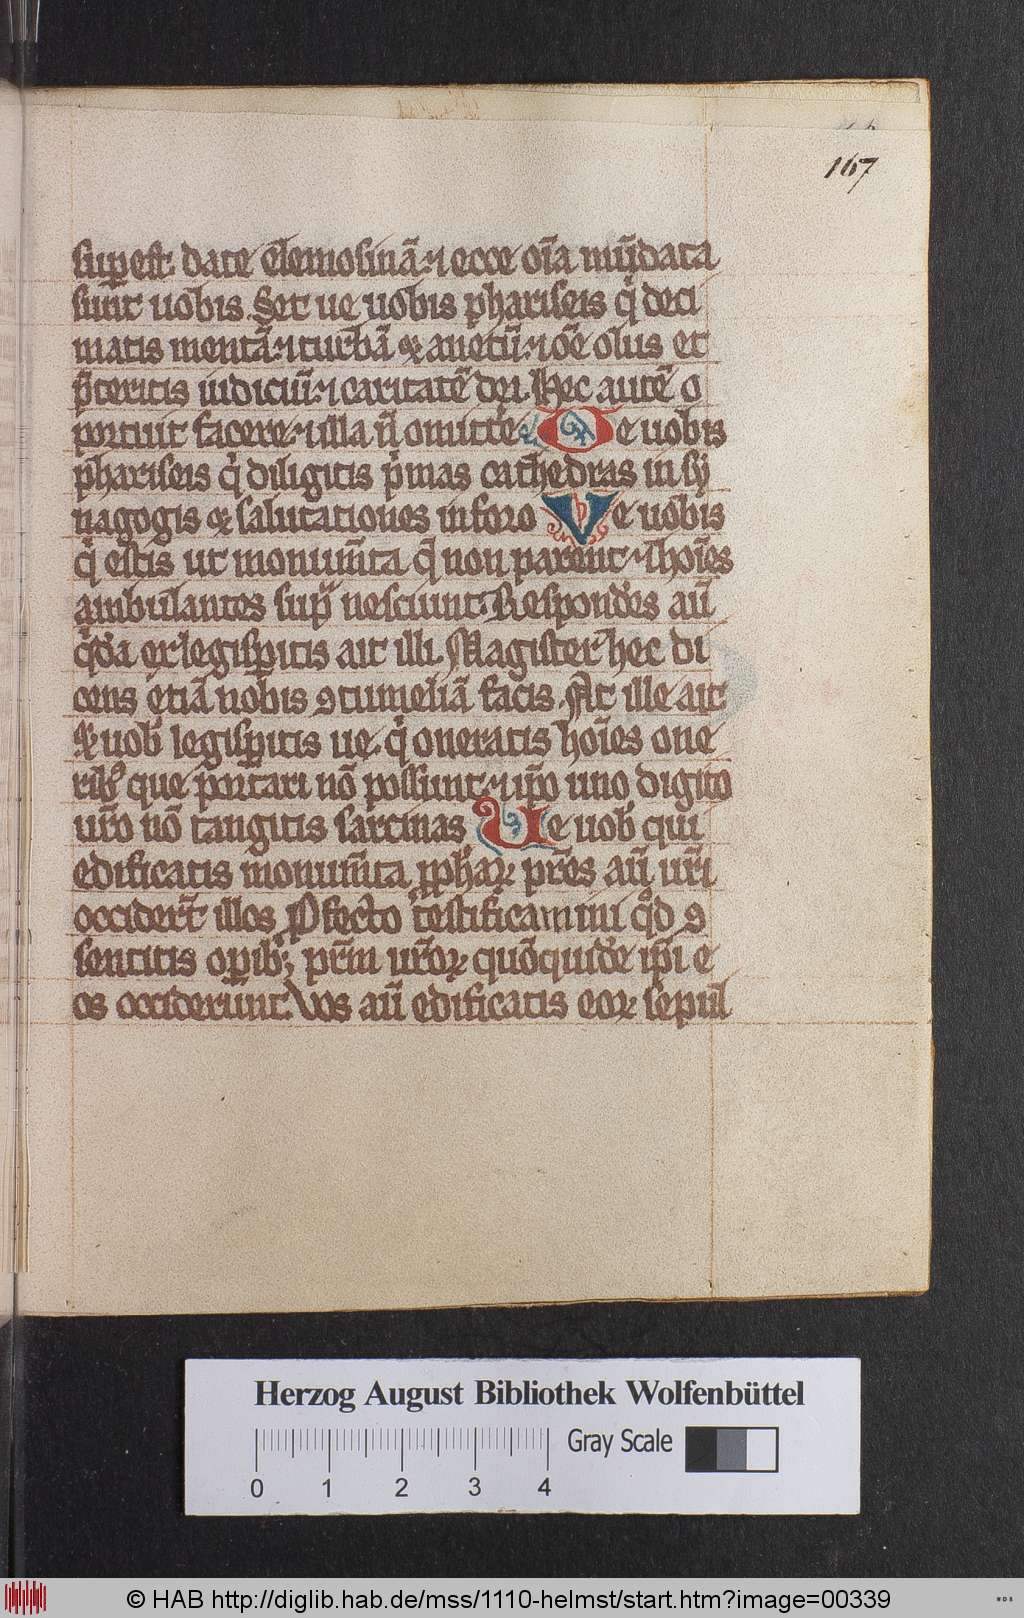 167
suꝑest date elemosinā ⁊ ecce oīa mūdata
sunt uobis. Set ue uobis phariseis q̇ deci
matis mentā ⁊ rutā & anetū ⁊ oē olus et
p̄teritis iudiciū ⁊ caritatē dei. Hec autē o
portuit facere ⁊ illa n̄ omitte Ue uobis
phariseis q̇ diligitis ṗmas cathedras in sy
nagogis & salutationes in foro Ve uobis
q̇ estis ut monum̄ta q̄ non parent ⁊ hoīes
ambulantes sup̄ nesciunt. Respondēs aū
q̇dā ex legisꝑitis ait illi. Magister hec di
cens etiā nobis ꝯtumeliā facis. At ille ait
& uob̄ legisꝑitis ue. q̇ oneratis hoīes one
ribꝰ que portari nō possunt ⁊ ip̄o uno digito
ur̄o nō tangitis sarcinas Ue uob̄ qui
edificatis monum̄ta ꝓphaꝝ pr̄es aū ur̄i
occider̄t illos Ꝓfecto testificamini qͦd ꝯ
sentitis oꝑibꝫ pr̄m ur̄oꝝ quō quidē ip̄i e
os occiderunt. Vos aū edificatis eoꝝ sepul
Herzog August Bibliothek Wolfenbüttel
Gray Scale
0 1 2 3 4
© HAB http://diglib.hab.de/mss/1110-helmst/start.htm?image=00339